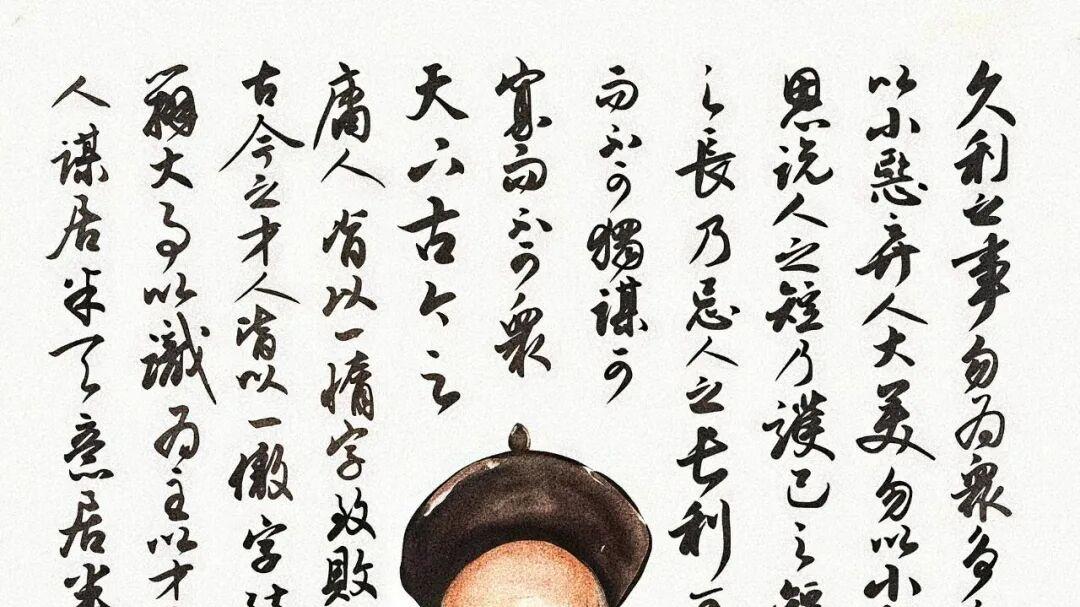 久利之事勿为衆争
以小惡弃人大美勿以小
思说人之短乃護己之短
之長乃忌人之长利可
而不可獨謀可
寡而不可衆
天下古今之
庸人皆以一惰字致敗
古今之才人皆以一傲字
辦大事以識为主以才
人謀居半天意居半